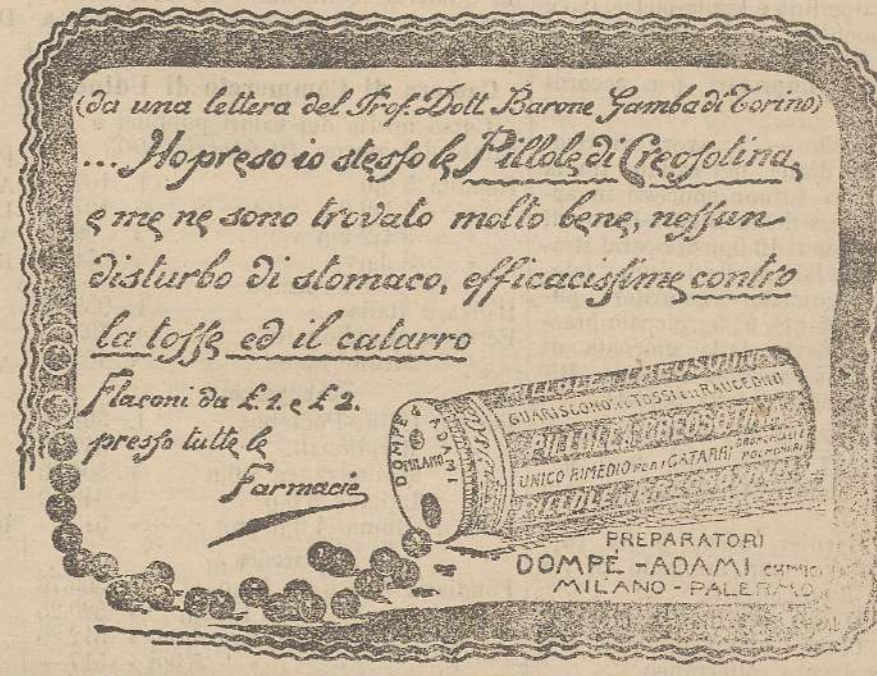 (da una lettera del Prof. Dott. Barone Gamba di Torino)
... Ho preso io stesso le Pillole di Creosotina,
e me ne sono trovato molto bene, nessun
disturbo di stomaco, efficacissime contro
la tosse ed il catarro
Flaconi da £. 1. e £ 2.
presso tutte le
Farmacie
DOMPÉ & ADAMI
MILANO
PILLOLE DI CREOSOTINA
GUARISCONO LE TOSSI E LE RAUCEDINI
PILLOLE DI CREOSOTINA
UNICO RIMEDIO PER I CATARRI BRONCHIALI E POLMONARI
PILLOLE DI CREOSOTINA
PREPARATORI
DOMPÉ - ADAMI CHIMICI
MILANO - PALERMO